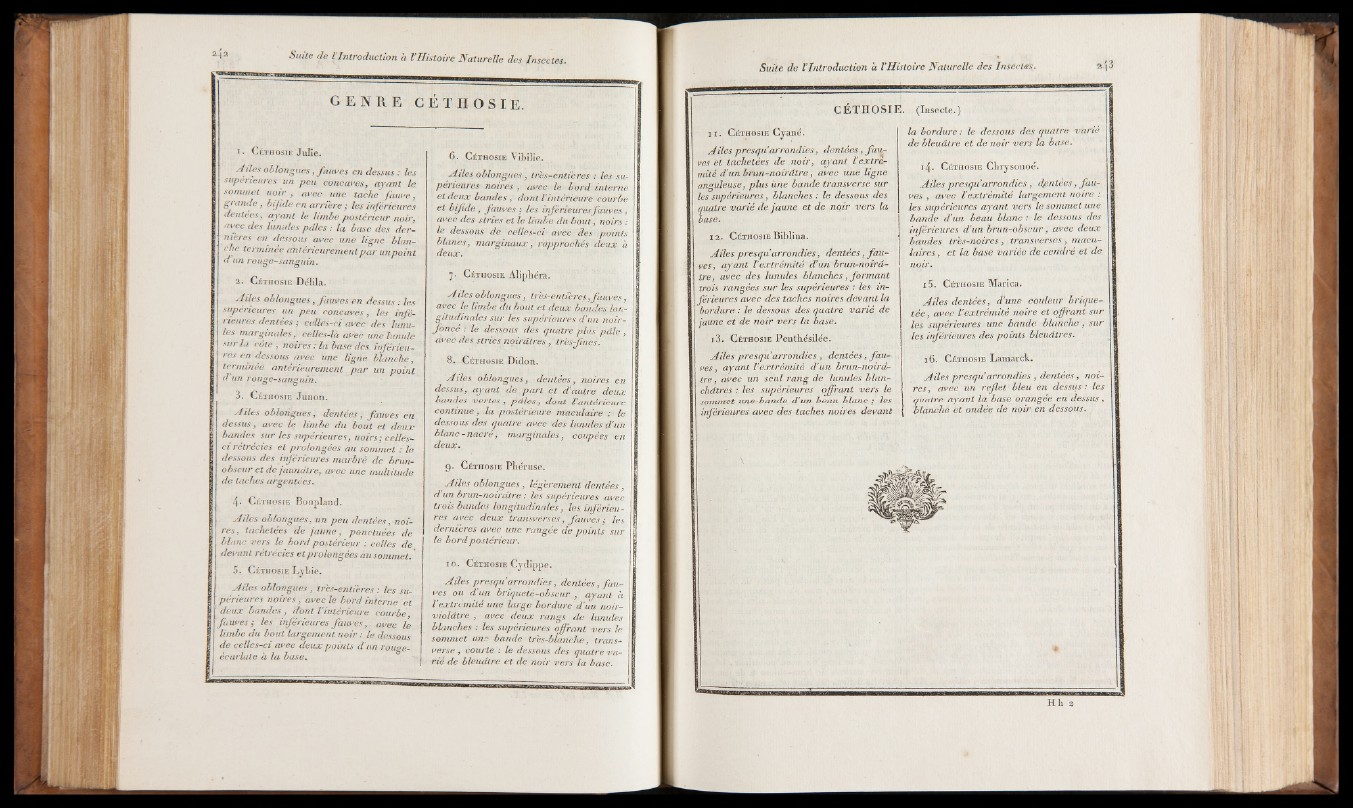 242
Suite de l'Introduction à l'Histoire Naturelle des Insectes.
GENRE CÉTHOSIE.
1. CÉTHOSIE Julie.
Ailes oblongues, fauves en dessus : les
supérieures un peu concaves, ayant le
sommet noir, avec une tache fauve,
grande, bifide en arrière ; les inférieures
dentées, ayant le limbe postérieur noir,
avec des lunules pâles : la base des der-
nières en dessous avec une ligne blan-
che terminée antérieurement par un point
d'un rouge-sanguin.
2. CÉTHOSIE Délila.
Ailes oblongues, fauves en dessus : les
supérieures un peu concaves, les infé-
rieures dentées ; celles-ci avec des lunu-
les marginales, celles-là avec une lunule
sur la côte, noires : la base des inférieu-
res en dessous avec une ligne blanche,
terminée antérieurement par un point
d'un rouge-sanguin.
3. CÉTHOSIE Junon.
Ailes oblongues, dentées, fauves en
dessus, avec le limbe du bout et deux
bandes sur les supérieures, noirs ; celles-
ci rétrécies et prolongées au sommet : le
dessous des inférieures marbré de brun-
obscur et de jaunâtre, avec une multitude
de taches argentées.
4. CÉTHOSIE Bonpland.
Ailes oblongues, un peu dentées, noi-
res, tachetées de jaune, ponctuées de
blanc vers le bord postérieur : celles de
devant rétrécies et prolongées au sommet.
5. CÉTHOSIE Lybie.
Ailes oblongues, très-entières : les su-
périeures noires, avec le bord interne et
deux bandes, dont l'intérieure courbe,
fauves ; les inférieures fauves, avec le
limbe du bout largement noir : le dessous
de celles-ci avec deux points d'un rouge-
écarlate à la base.
6. CÉTHOSIE Vibilie.
Ailes oblongues, très-entières : les su-
périeures noires, avec le bord interne
et deux bandes, dont l'intérieure courbe
et bifide, fauves : les inférieures fauves,
avec des stries et le limbe du bout, noirs :
le dessous de celles-ci avec des points
blancs, marginaux, rapprochés deux à
deux.
7. CÉTHOSIE Aliphéra.
Ailes oblongues, très-entières, fauves,
avec le limbe du bout et deux bandes lon-
gitudinales sur les supérieures d'un noir-
foncé : le dessous des quatre plus pâle,
avec des stries noirâtres, très-fines.
8. CÉTHOSIE Didon.
Ailes oblongues, dentées, noires en
dessus, ayant de part et d'autre deux
bandes vertes, pâles, dont l'antérieure
continue, la postérieure maculaire : le
dessous des quatre avec des lunules d'un
blanc-nacré, marginales, coupées en
deux.
9. CÉTHOSIE Phéruse.
Ailes oblongues, légèrement dentées,
d'un brun-noirâtre : les supérieures avec
trois bandes longitudinales, les inférieu-
res avec deux transverses, fauves ; les
dernières avec une rangée de points sur
le bord postérieur.
10. CÉTHOSIE Cydippe.
Ailes presqu'arrondies, dentées, fau-
ves ou d'un briqueté-obscur, ayant à
l'extrémité une large bordure d'un noir-
violâtre, avec deux rangs de lunules
blanches : les supérieures offrant vers le
sommet une bande très-blanche, trans-
verse, courte : le dessous des quatre va-
rié de bleuâtre et de noir vers la base.
Suite de l'Introduction à l'Histoire Naturelle des Insectes.
243
CÉTHOSIE. (Insecte.)
11. CÉTHOSIE Cyané.
Ailes presqu'arrondies, dentées, fau-
ves et tachetées de noir, ayant l'extré-
mité d'un brun-noirâtre, avec une ligne
anguleuse, plus une bande transverse sur
les supérieures, blanches : le dessous des
quatre varié de jaune et de noir vers la
base.
12. CÉTHOSIE Biblina.
Ailes presqu'arrondies, dentées, fau-
ves, ayant l'extrémité d'un brun-noirâ-
tre, avec des lunules blanches, formant
trois rangées sur les supérieures : les in-
férieures avec des taches noires devant la
bordure : le dessous des quatre varié de
jaune et de noir vers la base.
13. CÉTHOSIE Penthésilée.
Ailes presqu'arrondies, dentées, fau-
ves, ayant l'extrémité d'un brun-noirâ-
tre, avec un seul rang de lunules blan-
châtres : les supérieures offrant vers le
sommet une bande d'un beau blanc ; les
inférieures avec des taches noires devant
la bordure : le dessous des quatre varié
de bleuâtre et de noir vers la base.
14. CÉTHOSIE Chrysonoé.
Ailes presqu'arrondies, dentées, fau-
ves, avec l'extrémité largement noire :
les supérieures ayant vers le sommet une
bande d'un beau blanc : le dessous des
inférieures d'un brun-obscur, avec deux
bandes très-noires, transverses, macu-
laires, et la base variée de cendré et de
noir.
15. CÉTHOSIE Marica.
Ailes dentées, d'une couleur brique-
tée, avec l'extrémité noire et offrant sur
les supérieures une bande blanche, sur
les inférieures des points bleuâtres.
16. CÉTHOSIE Lamarck.
Ailes presqu'arrondies, dentées, noi-
res, avec un reflet bleu en dessus : les
quatre ayant la base orangée en dessus,
blanche et ondée de noir en dessous.
Hh 2